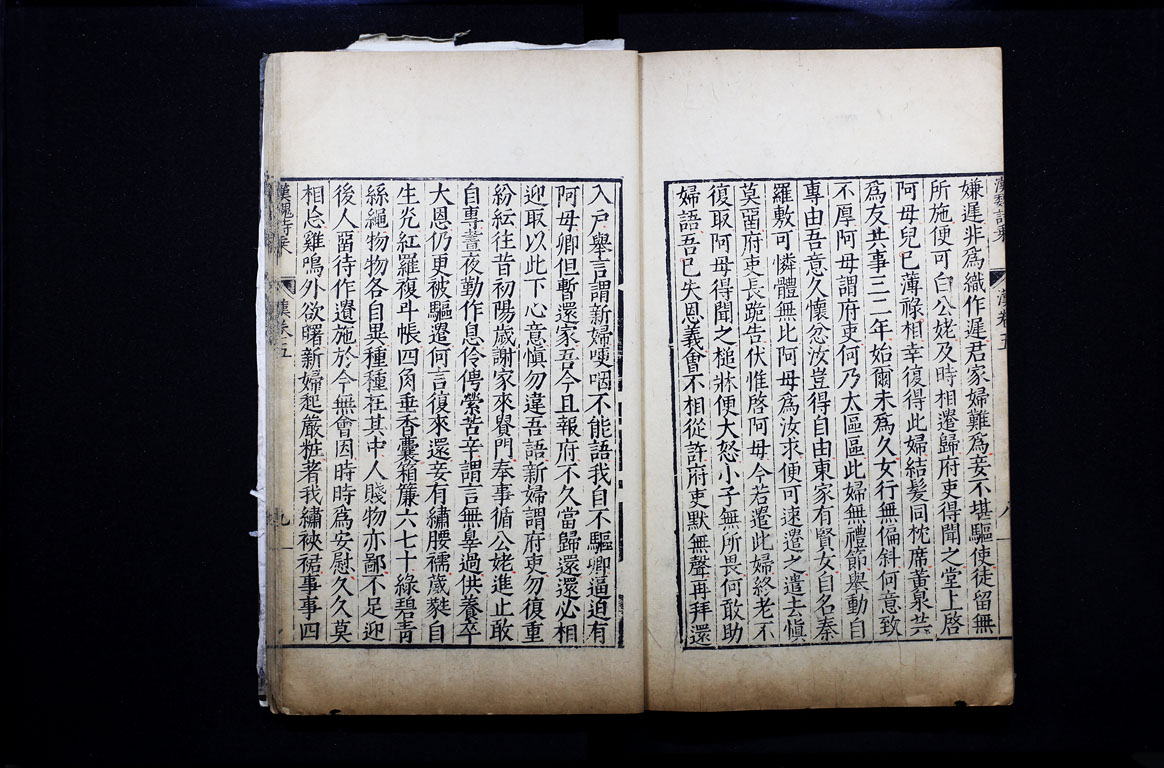 漢魏詩乘 漢卷五 八
嫌遲非爲織作遲君家婦難爲妾不堪驅使徒留無
所施便可白公姥及時相遣歸府吏得聞之堂上啓
阿母兒已薄祿相幸復得此婦結髮同枕席黃泉共
爲友共事三二年始爾未爲久女行無偏斜何意致
不厚阿母謂府吏何乃太區區此婦無禮節舉動自
專由吾意久懷忿汝豈得自由東家有賢女自名秦
羅敷可憐體無比阿母爲汝求便可速遣之遣去愼
莫留府吏長跪告伏惟啓阿母今若遣此婦終老不
復取阿母得聞之槌牀便大怒小子無所畏何敢助
婦語吾已失恩義會不相從許府吏默無聲再拜還
入戶舉言謂新婦哽咽不能語我自不驅卿逼迫有
阿母卿但暫還家吾今且報府不久當歸還還必相
迎取以此下心意愼勿違吾語新婦謂府吏勿復重
紛紜往昔初陽歲謝家來貴門奉事循公姥進止敢
自專晝夜勤作息伶俜縈苦辛謂言無辠過供養卒
大恩仍更被驅遣何言復來還妾有繡腰襦葳蕤自
生光紅羅複斗帳四角垂香囊箱簾六七十綠碧青
絲繩物物各自異種種在其中人賤物亦鄙不足迎
後人留待作遺施於今無會因時時爲安慰久久莫
相忘雞鳴外欲曙新婦起嚴粧著我繡裌裙事事四
漢魏詩乘 漢卷五 九